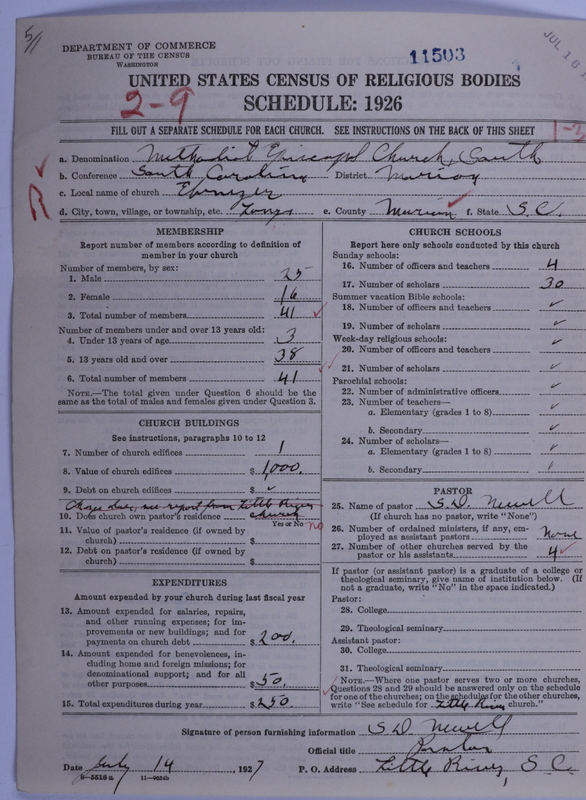 5/1
DEPARTMENT OF COMMERCE
BUREAU OF THE CENSUS
WASHINGTON
11503
JUL 16
UNITED STATES CENSUS OF RELIGIOUS BODIES
2-9
SCHEDULE: 1926
FILL OUT A SEPARATE SCHEDULE FOR EACH CHURCH. SEE INSTRUCTIONS ON THE BACK OF THIS SHEET
1-3
a. Denomination Methodist Episcopal Church, South
b. Conference South Carolina District Marion
c. Local name of church Ebenezer
d. City, town, village, or township, etc. Longs e. County Marion f. State S.C.
MEMBERSHIP
Report number of members according to definition of
member in your church
Number of members, by sex:
1. Male 25
2. Female 16
3. Total number of members 41
Number of members under and over 13 years old:
4. Under 13 years of age 3
5. 13 years old and over 38
6. Total number of members 41
NOTE.—The total given under Question 6 should be
same as the total of males and females given under Question 3.
CHURCH BUILDINGS
See instructions, paragraphs 10 to 12
7. Number of church edifices 1
8. Value of church edifices $1000.
9. Debt on church edifices $ ✓
see report from Little River
10. Does church own pastor's residence church
Yes or No no
11. Value of pastor's residence (if owned by
church) $
12. Debt on pastor's residence (if owned by
church) $
EXPENDITURES
Amount expended by your church during last fiscal year
13. Amount expended for salaries, repairs,
and other running expenses; for im-
provements or new buildings; and for
payments on church debt $200.
14. Amount expended for benevolences, in-
cluding home and foreign missions; for
denominational support; and for all
other purposes $50.
15. Total expenditures during year $250
CHURCH SCHOOLS
Report here only schools conducted by this church
Sunday schools:
16. Number of officers and teachers 4
17. Number of scholars 30
Summer vacation Bible schools:
18. Number of officers and teachers ✓
19. Number of scholars ✓
Week-day religious schools:
20. Number of officers and teachers ✓
21. Number of scholars ✓
Parochial schools:
22. Number of administrative officers ✓
23. Number of teachers—
a. Elementary (grades 1 to 8) ✓
b. Secondary ✓
24. Number of scholars—
a. Elementary (grades 1 to 8) ✓
b. Secondary ✓
PASTOR
25. Name of pastor S.D. Newell
(If church has no pastor, write "None")
26. Number of ordained ministers, if any, em-
ployed as assistant pastors None
27. Number of other churches served by the
pastor or his assistants 4
If pastor (or assistant pastor) is a graduate of a college or
theological seminary, give name of institution below. (If
not a graduate, write "No" in the space indicated.)
Pastor:
28. College
29. Theological seminary
Assistant pastor:
30. College
31. Theological seminary
NOTE.—Where one pastor serves two or more churches,
Questions 28 and 29 should be answered only on the schedule
for one of the churches; on the schedules for the other churches,
write "See schedule for Little River church."
Signature of person furnishing information S.D. Newell
Official title Pastor
Date July 14, 1927 P. O. Address Little River, S.C.
8-5516a 11-9624b